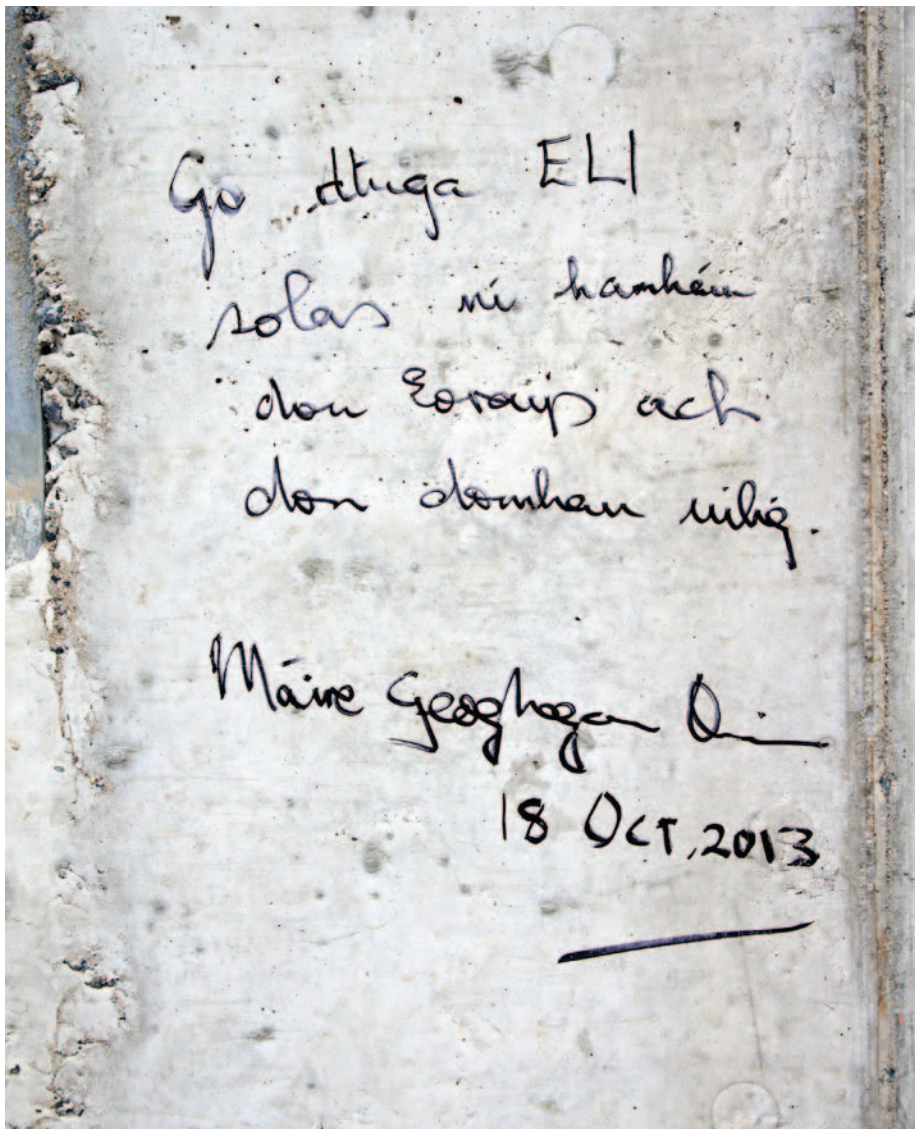 Go dtuga ELI
solas ní hamháin
don Eoraip ach
don domhan uilig.
Máire Geoghegan Quinn
18 OCT, 2013